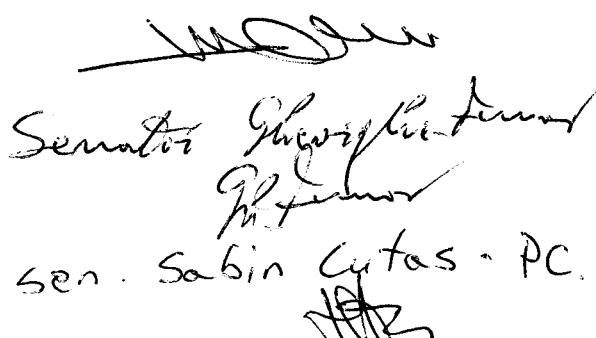 Senator Gheorghe Funar
Gh. Funar
sen. Sabin Cutas - PC.